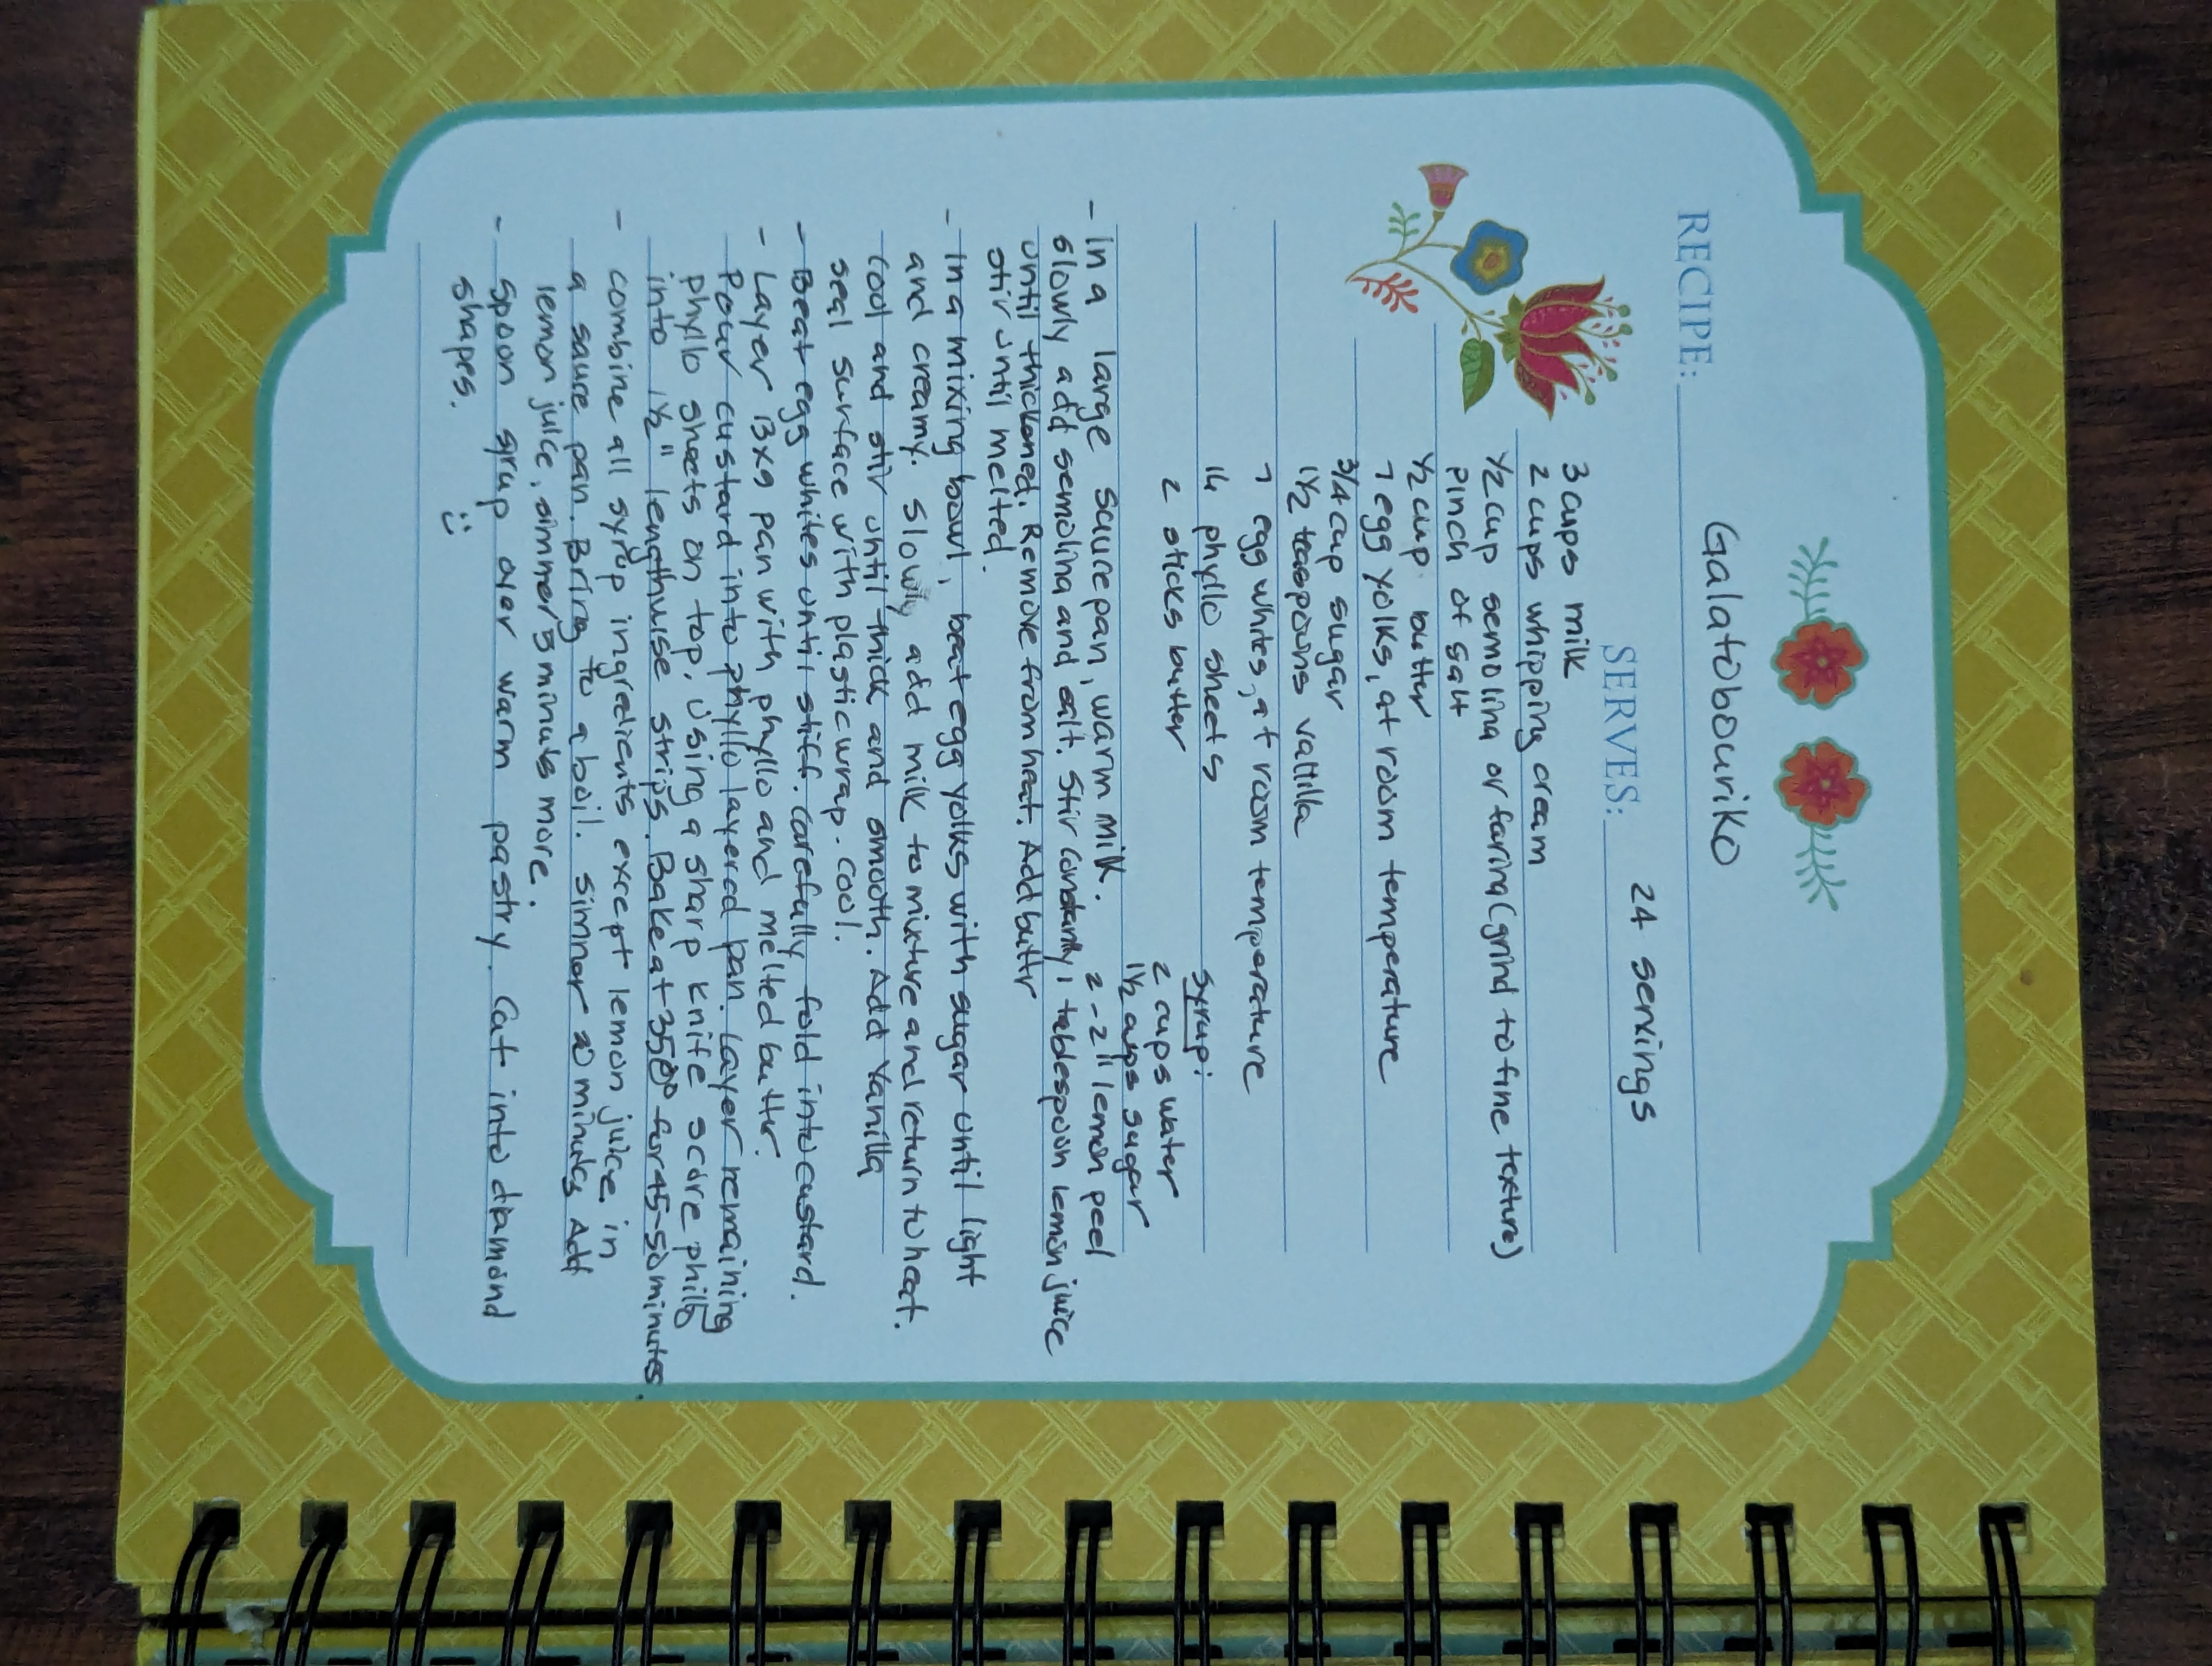 RECIPE: Galatobouriko
SERVES: 24 servings
3 cups milk
2 cups whipping cream
1/2 cup semolina or farina (grind to fine texture)
pinch of salt
1/2 cup butter
7 egg yolks, at room temperature
3/4 cup sugar
1 1/2 teaspoons vanilla
7 egg whites, at room temperature
14 phyllo sheets
2 sticks butter
Syrup:
2 cups water
1 1/2 cups sugar
2 - 2" lemon peel
1 tablespoon lemon juice
- In a large saucepan, warm milk.
slowly add semolina and salt. Stir constantly
until thickened. Remove from heat. Add buttr
stir until melted.
- In a mixing bowl, beat egg yolks with sugar until light
and creamy. Slowly add milk to mixture and return to heat.
Cool and stir until thick and smooth. Add Vanilla
seal surface with plastic wrap. Cool.
- Beat egg whites until stiff. Carefully fold into custard.
- Layer 13x9 pan with phyllo and melted buttr.
Pour custard into phyllo layered pan. Layer remaining
phyllo sheets on top, using a sharp knife score phillo
into 1 1/2" lengthwise strips. Bake at 350° for 45-50 minutes.
- combine all syrup ingredients except lemon juice in
a sauce pan. Bring to a boil. Simmer 20 minutes Add
lemon juice, simmer 3 minutes more.
- Spoon syrup over warm pastry. Cut into diamond
shapes. :)